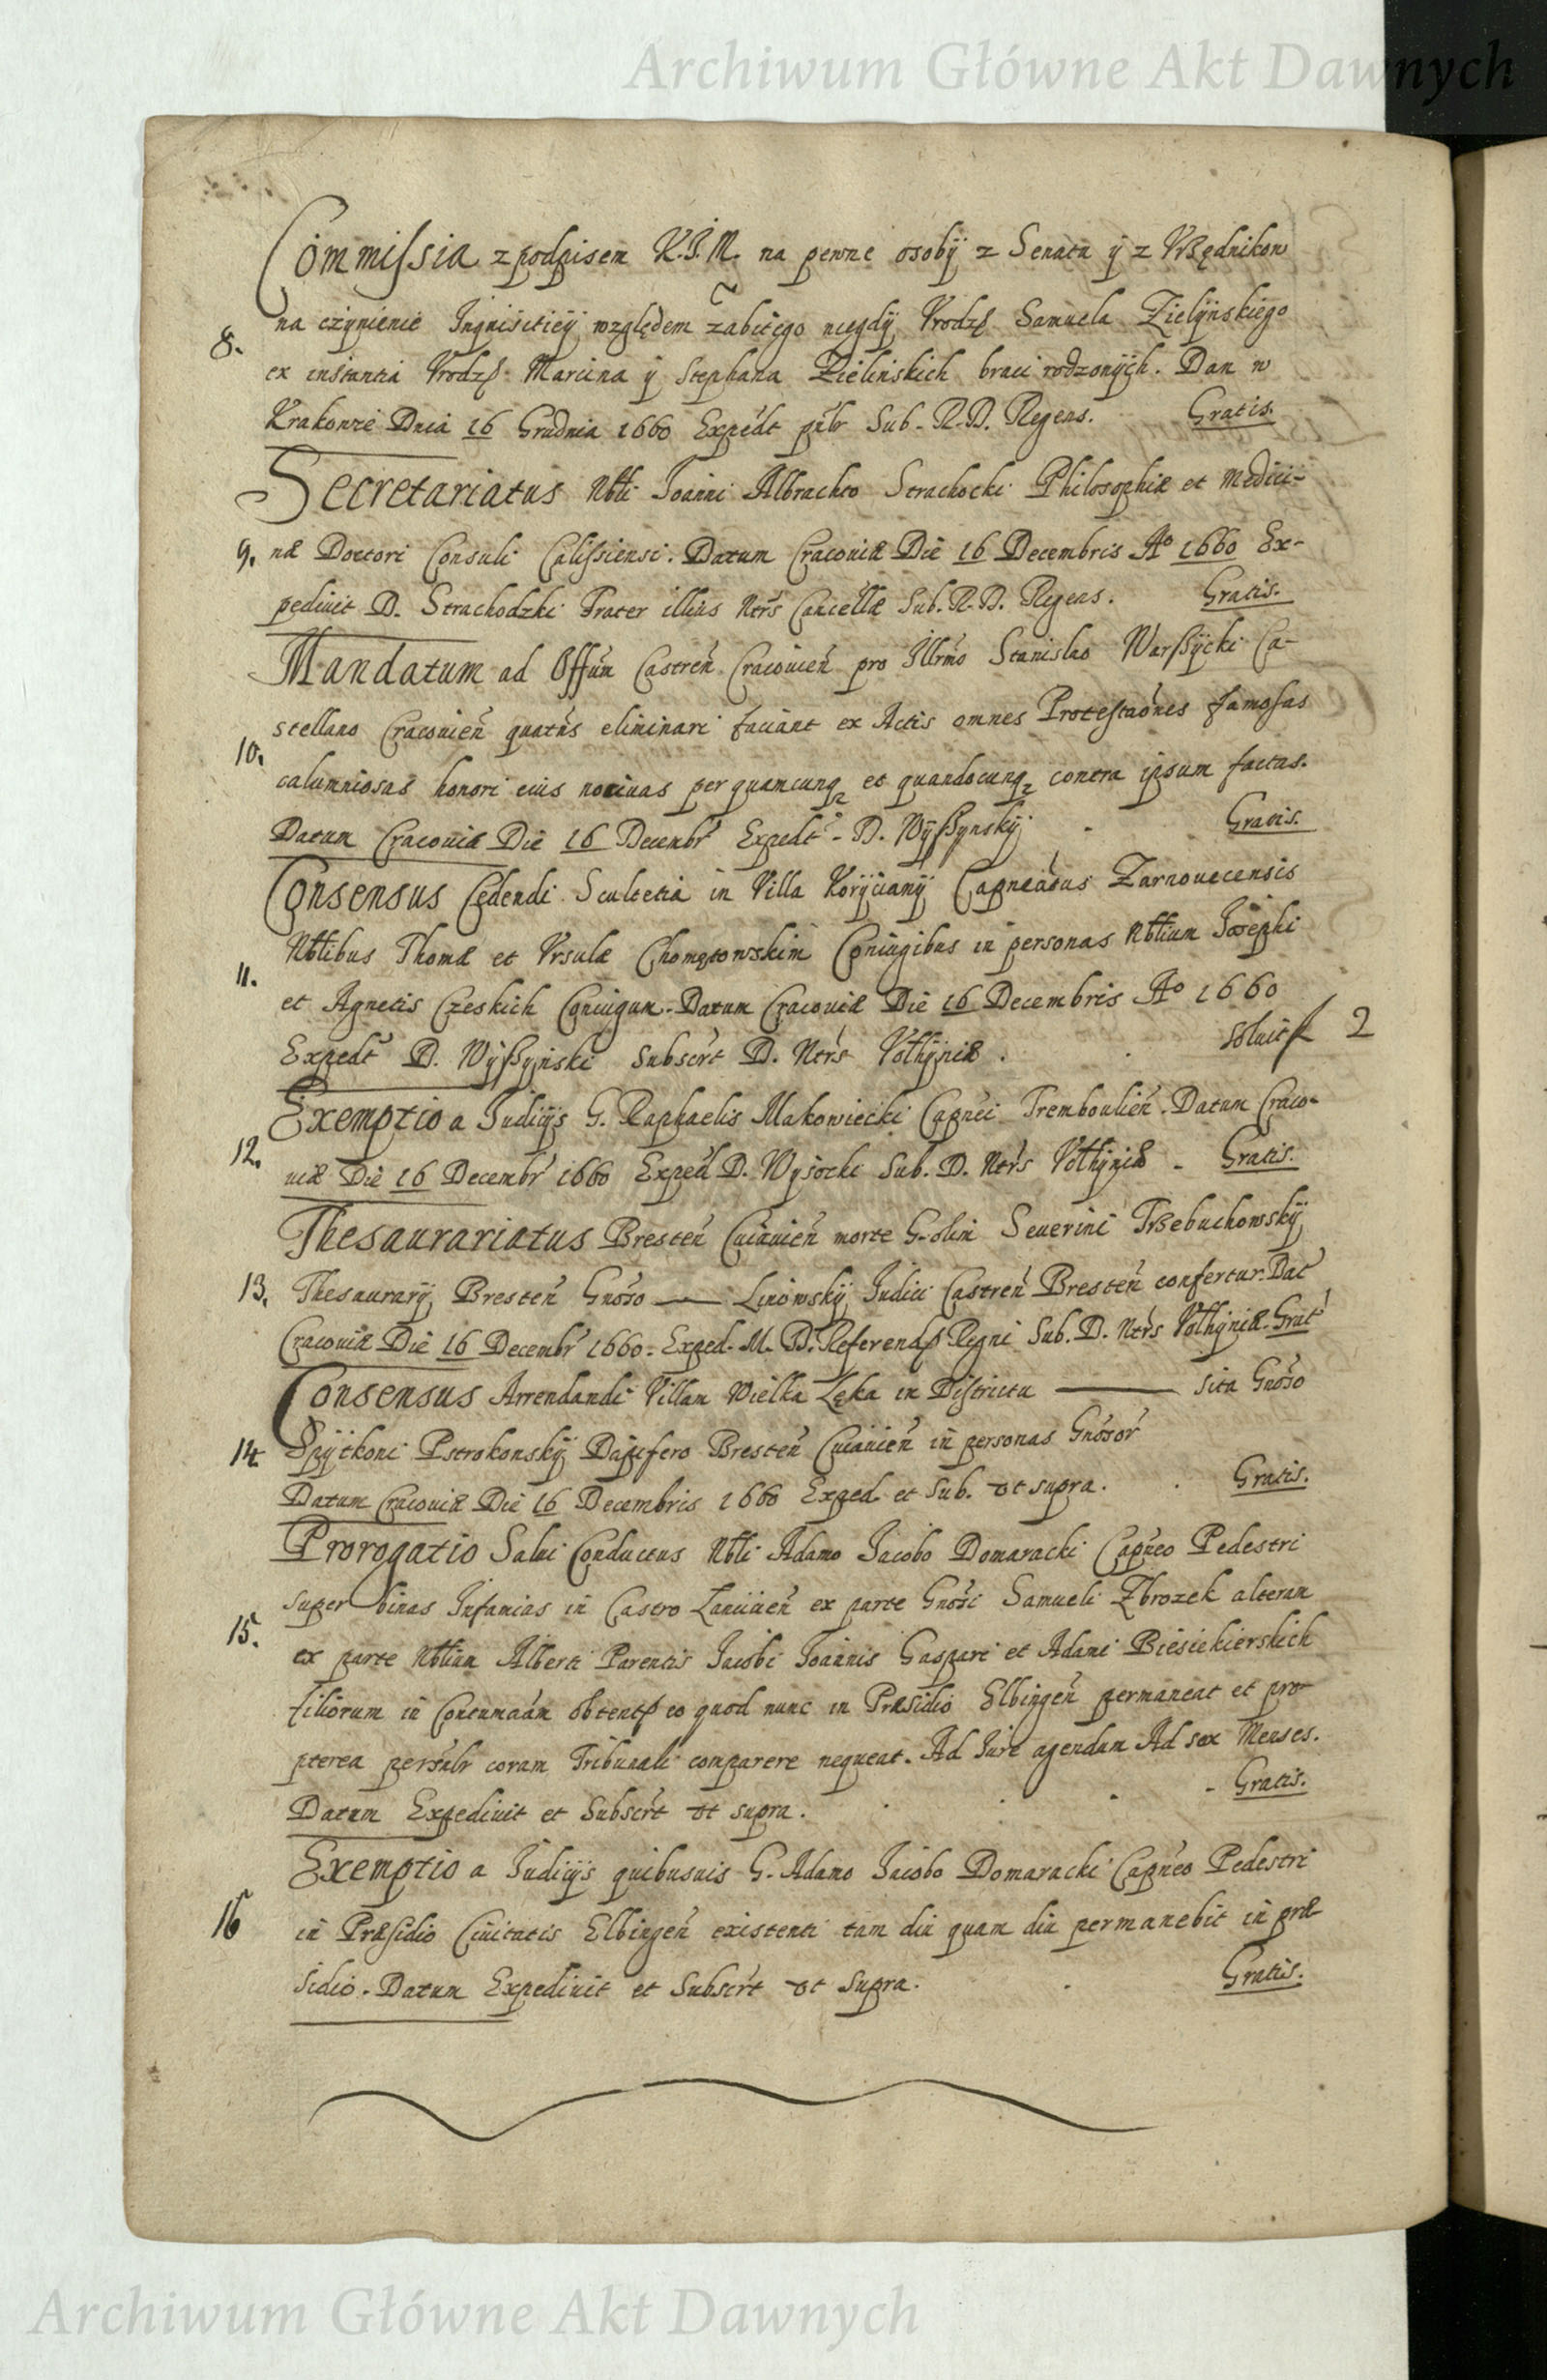 Archiwum Główne Akt Dawnych
Commissia z podpisem K.J.M. na pewne osobÿ z Senatu ÿ z Vrzędnikow
na czÿnienie Inquisitieÿ względem zabitego niegdÿ Vrodz. Samuela Zielÿnskiego
8.
ex instantia Vrodz. Marcina ÿ Stephana Zielinskich braci rodzonÿch. Dan w
Krakowie Dnia 16 Grudnia 1660 Expedt pnbr Sub. R.D. Regens. Gratis.
Secretariatus Nbli Joanni Albrachto Strachocki Philosophiæ et Medici-
9. næ Doctori Consuli Calissiensi. Datum Cracoviæ Die 16 Decembris Ao 1660 Ex-
pedivit D. Strachodzki Frater illius Ntrs Cancellæ Sub. R.D. Regens. Gratis.
Mandatum ad Offun Castren Cracovien pro Illrmo Stanislao Warszÿcki Ca-
stellano Cracovien quatns eliminari faciant ex Actis omnes Protestaones famosas
10.
calumniosas honori eius nocivas per quamcunq et quandocunq contra ipsum factas.
Datum Cracoviæ Die 16 Decembr Expedt - D. Wÿszÿnskÿ Gratis.
Consensus Cedendi Scultetia in Villa Korÿcianÿ Capneatus Zarnovecensis
Nblibus Thomæ et Vrsulæ Chomętowskim Coniugibus in personas Nblium Josephi
11.
et Agnetis Czeskich Coniugum. Datum Cracoviæ Die 16 Decembris Ao 1660
Expedt D. Wÿszÿnski Subscrt D. Ntrs Volhÿniæ. soluit f 2
Exemptio a Judicÿs G. Raphaelis Makowiecki Capnei Tremboulien. Datum Craco-
12.
viæ Die 16 Decembr 1660 Exped D. Wysocki Sub. D. Ntrs Volhÿniæ - Gratis.
Thesaurariatus Bresten Cuiavien morte G. olim Severini Trzebuchowskÿ
13. Thesaurarÿ Bresten Gnoso —— Linowskÿ Judici Castren Bresten confertur. Dat
Cracoviæ Die 16 Decembr 1660. Exped. M. D. Referend Regni Sub. D. Ntrs Volhÿniæ. Grat
Consensus Arrendandi Villam Wielka Lęka in Districtu —— sita Gnoso
14 Spÿtkoni Pstrokonskÿ Dapifero Bresten Cuiavien in personas Gnosor
Datum Cracoviæ Die 16 Decembris 1660 Exped. et Sub. vt supra. Gratis.
Prorogatio Salvi Conductus Nbli Adamo Jacobo Domaracki Capneo Pedestri
super binas Infamias in Castro Lancicien ex parte Gnosi Samueli Zbrozek alteram
15.
ex parte Nblium Alberti Parentis Jacobi Joannis Gaspari et Adami Biesiekierskich
filiorum in Contumaciam obtent eo quod nunc in Præsidio Elbingen permaneat et pro-
pterea persnlr coram Tribunali comparere nequeat. Ad Jure agendum Ad sex Menses.
Datum Expedivit et Subscrt vt supra. - Gratis.
Exemptio a Judicÿs quibusvis G. Adamo Jacobo Domaracki Capneo Pedestri
16 in Præsidio Civitatis Elbingen existenti tam diu quam diu permanebit in præ-
sidio. Datum Expedivit et Subscrt vt supra. Gratis.
Archiwum Główne Akt Dawnych